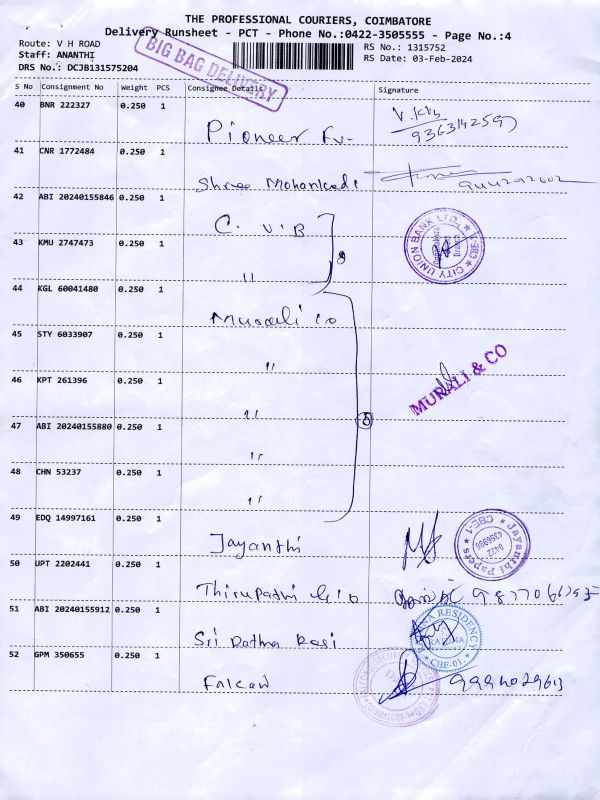 THE PROFESSIONAL COURIERS, COIMBATORE
Delivery Runsheet - PCT - Phone No.:0422-3505555 - Page No.:4
Route: V H ROAD
RS No.: 1315752
Staff: ANANTHI
RS Date: 03-Feb-2024
DRS No.: DCJB131575204
BIG BAG DELIVERY
S No Consignment No Weight PCS Consignee Details Signature
40 BNR 222327 0.250 1
Pioneer
9363142597
41 CNR 1772484 0.250 1
Shree
42 ABI 20240155846 0.250 1
C. V.B
CITY UNION BANK LTD.,
43 KMU 2747473 0.250 1
"
44 KGL 60041480 0.250 1
Murali co
45 STY 6033907 0.250 1
"
46 KPT 261396 0.250 1
"
MURALI & CO
47 ABI 20240155880 0.250 1
5
"
48 CHN 53237 0.250 1
"
49 EDQ 14997161 0.250 1
Jayanthi
Jayanthi Papers
CBE-1
0422
50 UPT 2202441 0.250 1
Thirupathi
51 ABI 20240155912 0.250 1
Sri Rathna
RESIDENCY
CBE-01.
52 GPM 350655 0.250 1
Falcon